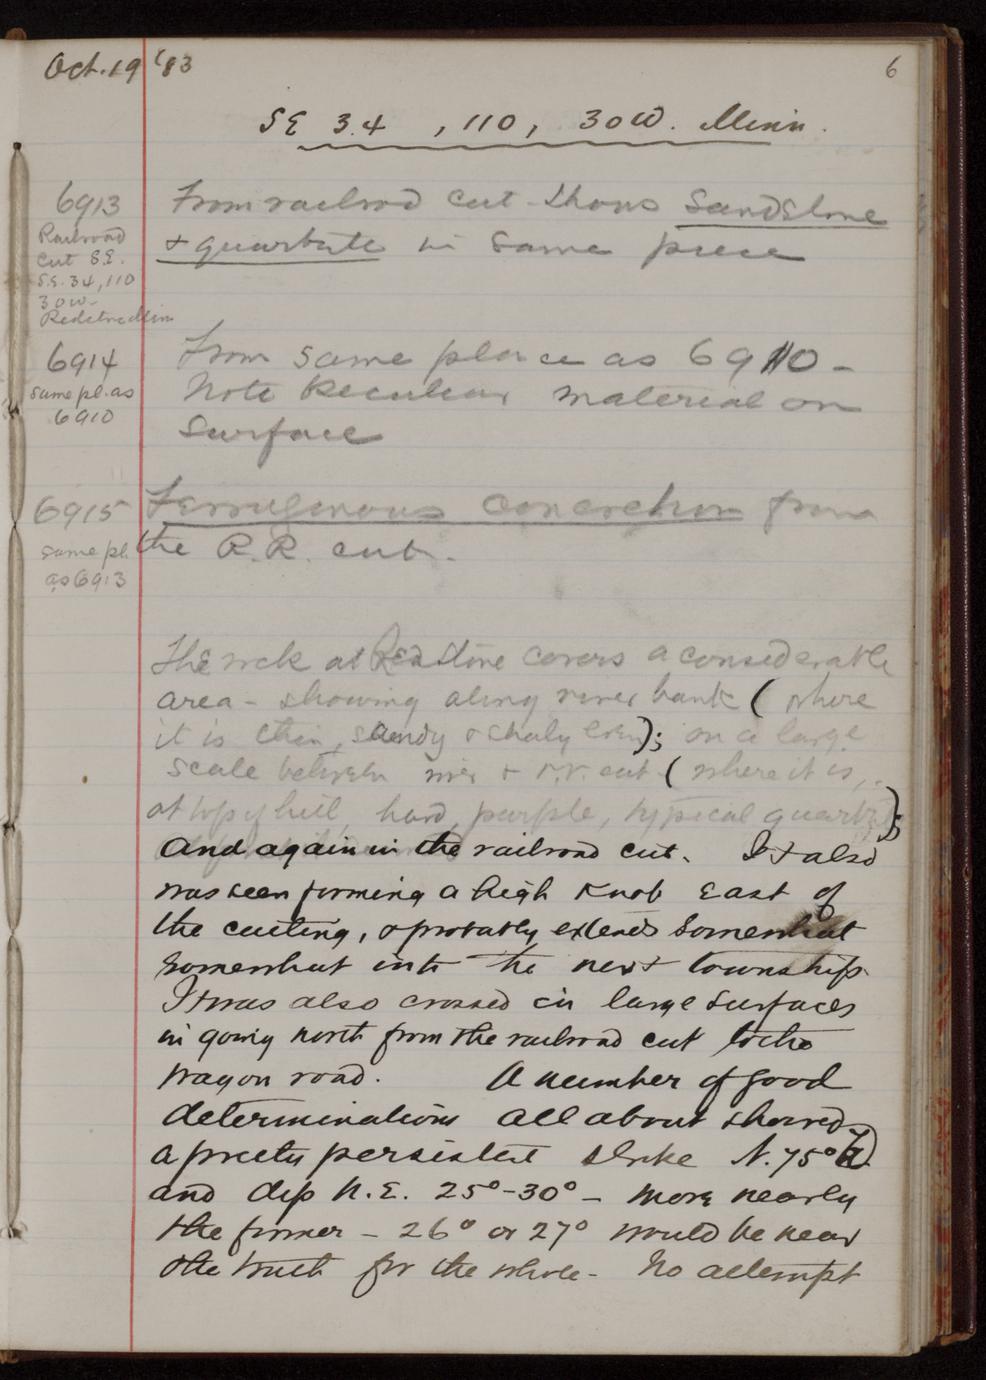 Oct. 19 '83
6
SE 34, 110, 30W. Minn.
6913
Railroad
Cut S.E.
S.E. 34, 110
30W-
Redstone Minn
From railroad cut - Shows Sandstone
& quartzite in same piece
6914
same pl. as
6910
From same place as 6910 -
Note peculiar material on
Surface
6915
same pl.
as 6913
Ferruginous concretion from
the R.R. cut.
The rock at Redstone covers a considerable
area - showing along river bank (where
it is thin, sandy & shaly even); on a large
scale between river & r.r. cut (where it is,
at top of hill, hard, purple, typical quartzite);
and again in the railroad cut. It also
was seen forming a high knob East of
the cutting, & probably extends somewhat
somewhat into the next township.
It was also crossed in large surfaces
in going north from the railroad cut to the
wagon road. A number of good
determinations all about showed
a pretty persistent strike N. 75°
and dip N.E. 25°-30° - more nearly
the former - 26° or 27° would be near
the truth for the whole - No attempt